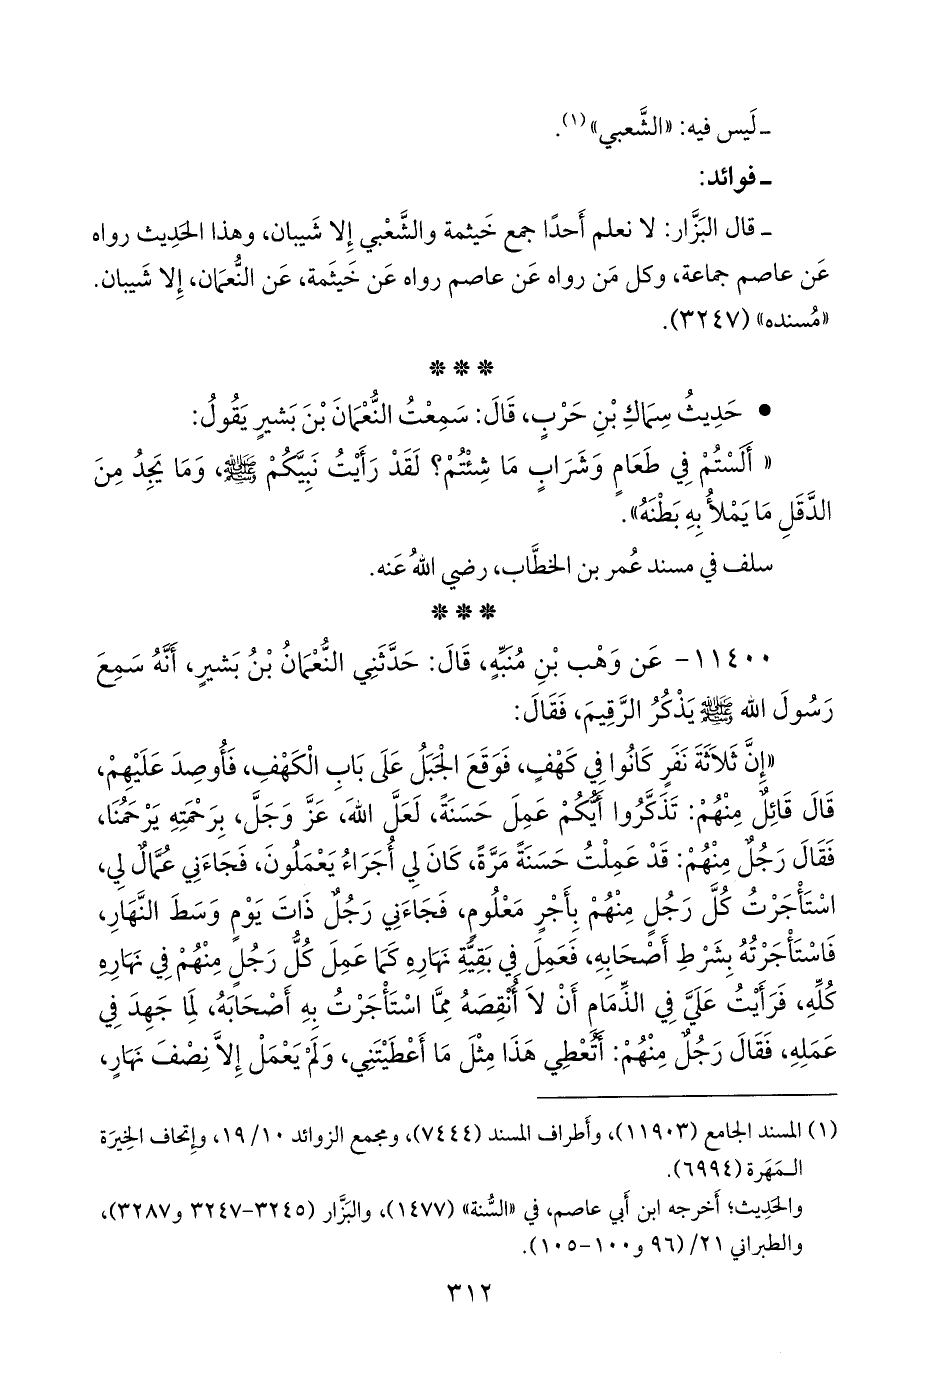 ـ لَيس فيه: «الشَّعبي»(١).
ـ فوائد:
ـ قال البَزَّار: لا نعلم أَحدًا جمع خَيثمة والشَّعْبي إِلا شَيبان، وهذا الحَدِيث رواه
عَن عاصم جماعة، وكل مَن رواه عَن عاصم رواه عَن خَيثَمة، عَن النُّعمَان، إِلا شَيبان.
«مُسنده» (٣٢٤٧).
* * *
• حَدِيثُ سِمَاكِ بْنِ حَرْبٍ، قَالَ: سَمِعْتُ النُّعْمَانَ بْنَ بَشِيرٍ يَقُولُ:
« أَلَسْتُمْ فِي طَعَامٍ وَشَرَابٍ مَا شِئْتُمْ؟ لَقَدْ رَأَيْتُ نَبِيَّكُمْ ﷺ، وَمَا يَجِدُ مِنَ
الدَّقَلِ مَا يَمْلأُ بِهِ بَطْنَهُ».
سلف في مسند عُمر بن الخطَّاب، رضي اللهُ عَنه.
* * *
١١٤٠٠- عَن وَهْبِ بْنِ مُنَبِّهٍ، قَالَ: حَدَّثَنِي النُّعْمَانُ بْنُ بَشِيرٍ، أَنَّهُ سَمِعَ
رَسُولَ الله ﷺ يَذْكُرُ الرَّقِيمَ، فَقَالَ:
«إِنَّ ثَلاَثَةَ نَفَرٍ كَانُوا فِي كَهْفٍ، فَوَقَعَ الْجَبَلُ عَلَى بَابِ الْكَهْفِ، فَأُوصِدَ عَلَيْهِمْ،
قَالَ قَائِلٌ مِنْهُمْ: تَذَكَّرُوا أَيُّكُمْ عَمِلَ حَسَنَةً، لَعَلَّ اللهَ، عَزَّ وَجَلَّ، بِرَحْمَتِهِ يَرْحَمُنَا،
فَقَالَ رَجُلٌ مِنْهُمْ: قَدْ عَمِلْتُ حَسَنَةً مَرَّةً، كَانَ لِي أُجَرَاءُ يَعْمَلُونَ، فَجَاءَنِي عُمَّالٌ لِي،
اسْتَأْجَرْتُ كُلَّ رَجُلٍ مِنْهُمْ بِأَجْرٍ مَعْلُومٍ، فَجَاءَنِي رَجُلٌ ذَاتَ يَوْمٍ وَسَطَ النَّهَارِ،
فَاسْتَأْجَرْتُهُ بِشَرْطِ أَصْحَابِهِ، فَعَمِلَ فِي بَقِيَّةِ نَهَارِهِ كَمَا عَمِلَ كُلُّ رَجُلٍ مِنْهُمْ فِي نَهَارِهِ
كُلِّهِ، فَرَأَيْتُ عَلَيَّ فِي الذِّمَامِ أَنْ لاَ أُنْقِصَهُ مِمَّا اسْتَأْجَرْتُ بِهِ أَصْحَابَهُ، لِمَا جَهِدَ فِي
عَمَلِهِ، فَقَالَ رَجُلٌ مِنْهُمْ: أَتُعْطِي هَذَا مِثْلَ مَا أَعْطَيْتَنِي، وَلَمْ يَعْمَلْ إِلاَّ نِصْفَ نَهَارٍ،
(١) المسند الجامع (١١٩٠٣)، وأَطراف المسند (٧٤٤٤)، ومجمع الزوائد ١٠/ ١٩، وإِتحاف الخِيرَة
المَهَرة (٦٩٩٤).
والحَدِيث؛ أَخرجه ابن أَبي عاصم، في «السُّنة» (١٤٧٧)، والبَزَّار (٣٢٤٥-٣٢٤٧ و٣٢٨٧)،
والطبراني ٢١/ (٩٦ و١٠٠-١٠٥).
٣١٢